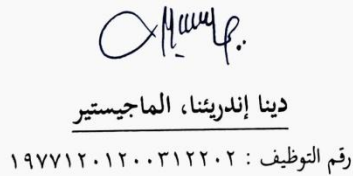 دينا إندريئنا، الماجيستير
رقم التوظيف : ١٩٧٧١٢٠١٢٠٠٣١٢٢٠٢